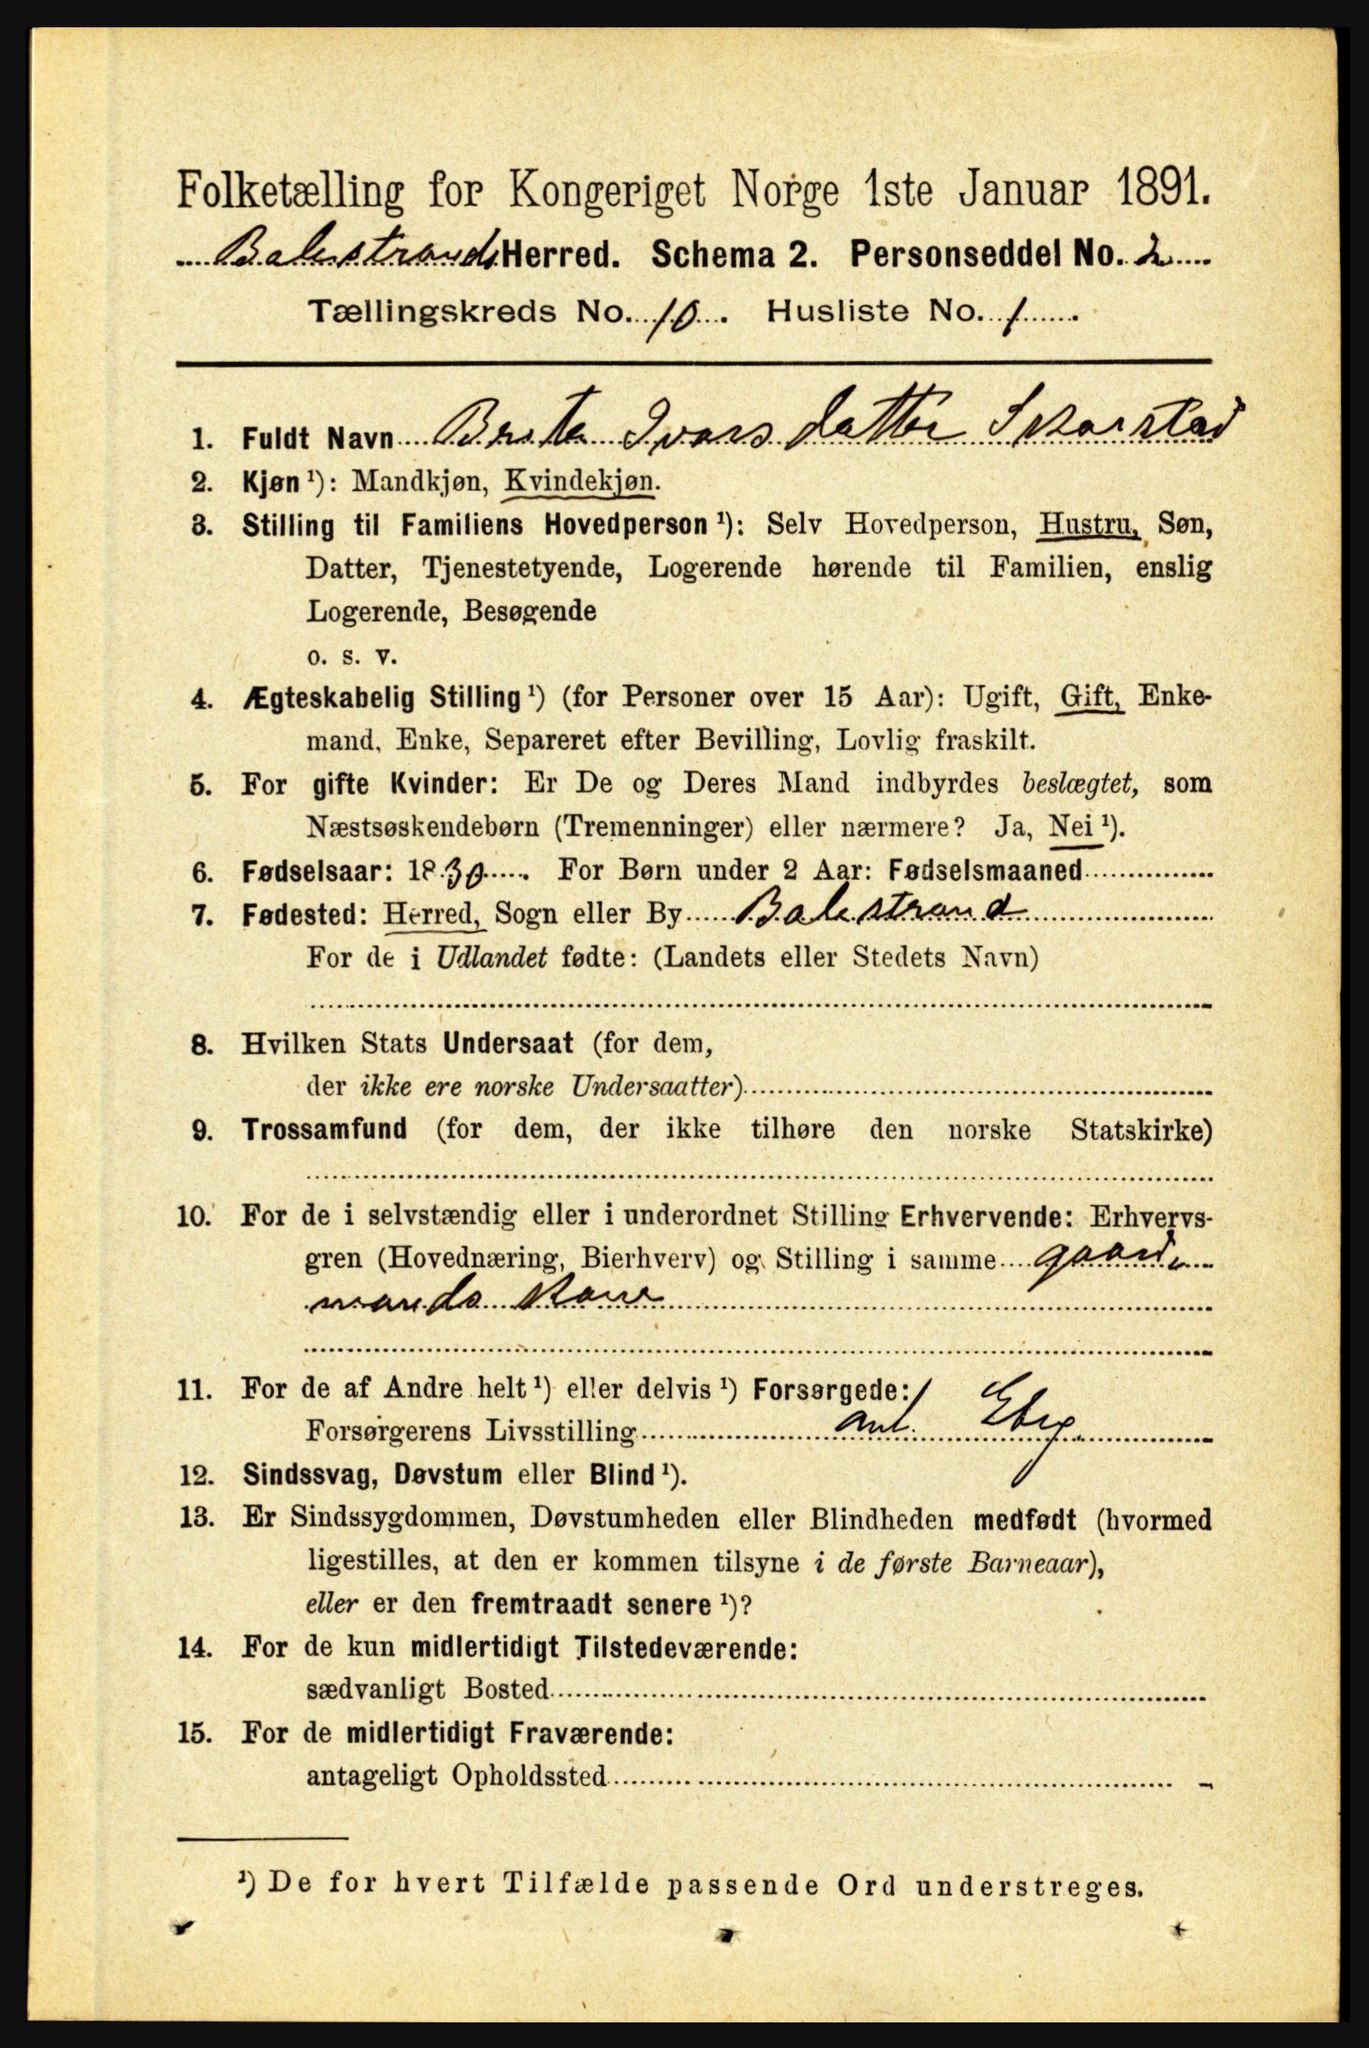 Folketælling for Kongeriget Norge 1ste Januar 1891.
Balestrands Herred. Schema 2. Personseddel No. 2
Tællingskreds No. 10. Husliste No. 1.
1. Fuldt Navn Brita Ivarsdatter Skarstad
2. Kjøn ¹): Mandkjøn, Kvindekjøn.
3. Stilling til Familiens Hovedperson ¹): Selv Hovedperson, Hustru, Søn,
Datter, Tjenestetyende, Logerende hørende til Familien, enslig
Logerende, Besøgende
o. s. v.
4. Ægteskabelig Stilling ¹) (for Personer over 15 Aar): Ugift, Gift, Enke-
mand, Enke, Separeret efter Bevilling, Lovlig fraskilt.
5. For gifte Kvinder: Er De og Deres Mand indbyrdes beslægtet, som
Næstsøskendebørn (Tremenninger) eller nærmere? Ja, Nei ¹).
6. Fødselsaar: 1830. For Børn under 2 Aar: Fødselsmaaned
7. Fødested: Herred, Sogn eller By Balestrand
For de i Udlandet fødte: (Landets eller Stedets Navn)
8. Hvilken Stats Undersaat (for dem,
der ikke ere norske Undersaatter)
9. Trossamfund (for dem, der ikke tilhøre den norske Statskirke)
10. For de i selvstændig eller i underordnet Stilling Erhvervende: Erhvervs-
gren (Hovednæring, Bierhverv) og Stilling i samme gaard-
mands kone
11. For de af Andre helt ¹) eller delvis ¹) Forsørgede:
Forsørgerens Livsstilling
12. Sindssvag, Døvstum eller Blind ¹).
13. Er Sindssygdommen, Døvstumheden eller Blindheden medfødt (hvormed
ligestilles, at den er kommen tilsyne i de første Barneaar),
eller er den fremtraadt senere ¹)?
14. For de kun midlertidigt Tilstedeværende:
sædvanligt Bosted
15. For de midlertidigt Fraværende:
antageligt Opholdssted
¹) De for hvert Tilfælde passende Ord understreges.